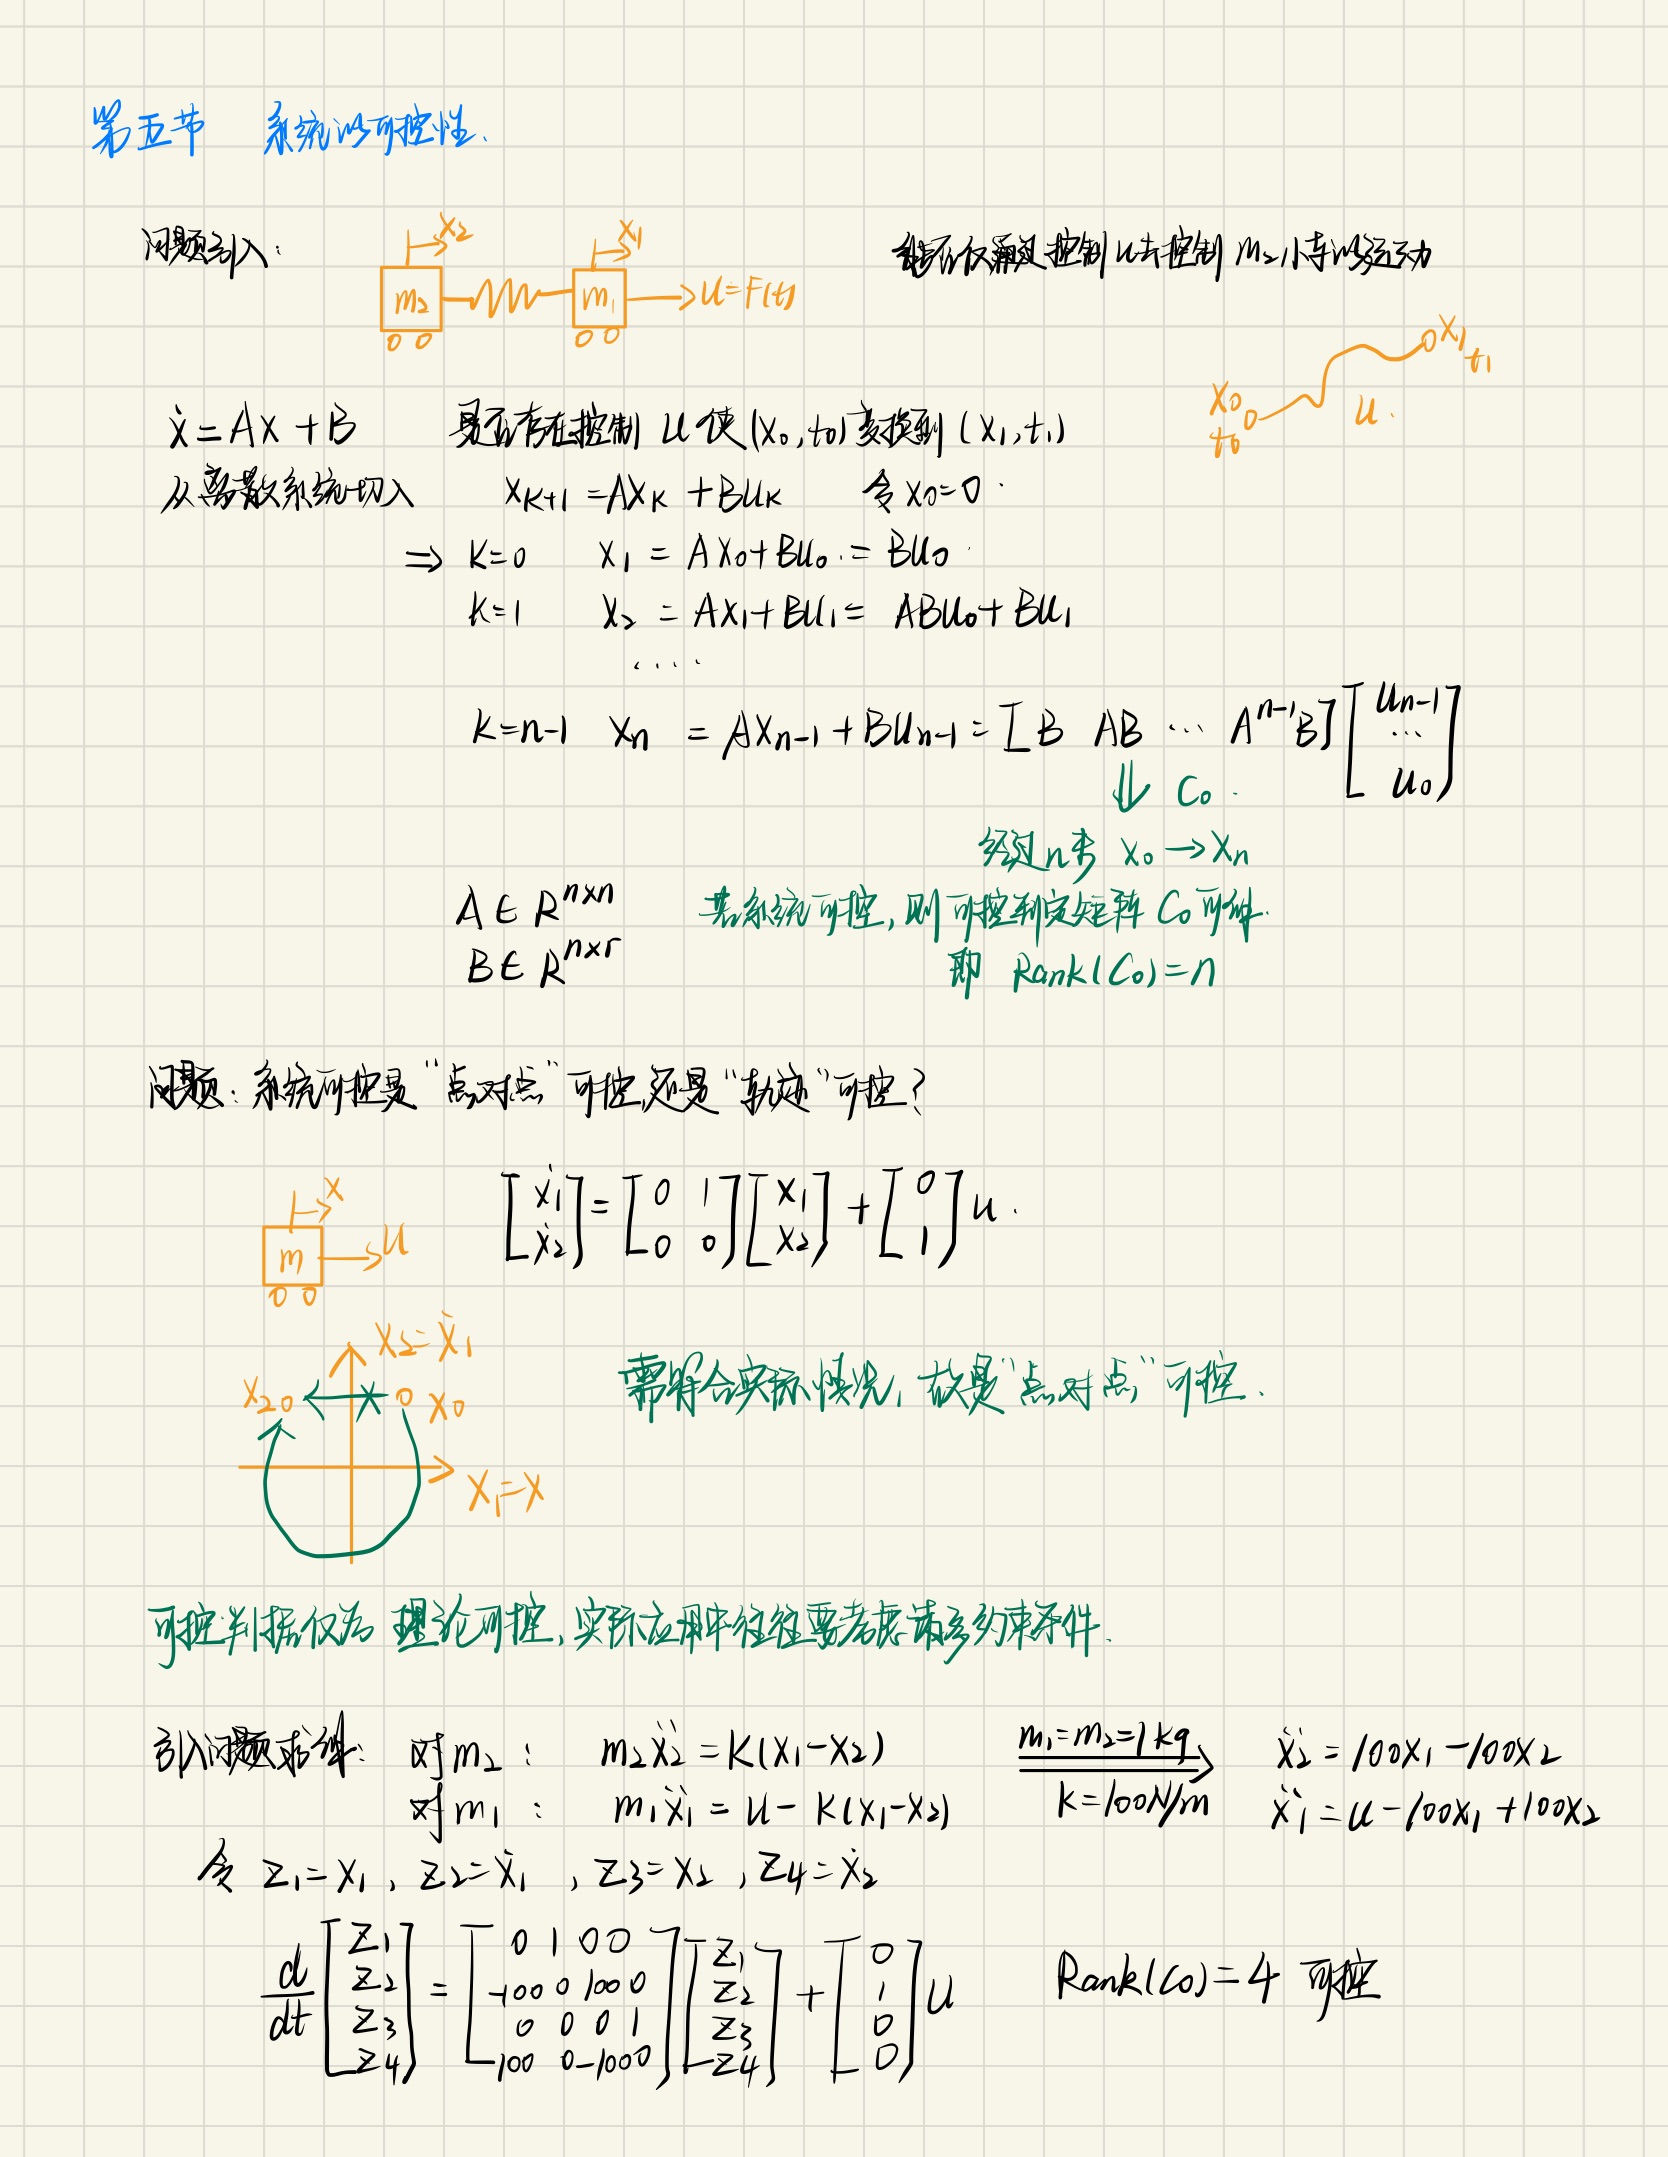 第五节 系统的可控性.
问题引入:
x2
x1
m2
m1
u=F(t)
能否仅通过控制u去控制m2小车的运动
x0
t0
u.
x1
t1
ẋ=Ax+B 是否存在控制 u 使(x0,t0)变换到(x1,t1)
从离散系统切入 xK+1=AxK+BuK 令x0=0.
⇒ K=0 x1 = Ax0+Bu0 = Bu0
K=1 x2 = Ax1+Bu1 = ABu0+Bu1
....
K=n-1 xn = Axn-1+Bun-1 = [B AB ... A^{n-1}B] [un-1 ... u0]
⇓ Co.
经过n步 x0→xn
A∈R^{n×n} 若系统可控,则可控判定矩阵Co可解.
B∈R^{n×r} 即 Rank(Co)=n
问题:系统可控是“点对点”可控,还是“轨迹”可控?
x
m
u
[ẋ1 ẋ2] = [0 1 0 0] [x1 x2] + [0 1] u.
x2=ẋ1
x20
x0
x1=x
需符合实际情况,故是“点对点”可控.
可控判据仅为理论可控,实际应用中往往要考虑诸多约束条件.
引入问题求解: 对m2: m2ẍ2=K(x1-x2) m1=m2=1kg ẍ2=100x1-100x2
对m1: m1ẍ1=u-K(x1-x2) k=100N/m ẍ1=u-100x1+100x2
令 z1=x1, z2=ẋ1, z3=x2, z4=ẋ2
d/dt [z1 z2 z3 z4] = [0 1 0 0 -100 0 100 0 0 0 0 1 100 0 -100 0] [z1 z2 z3 z4] + [0 1 0 0] u Rank(Co)=4 可控